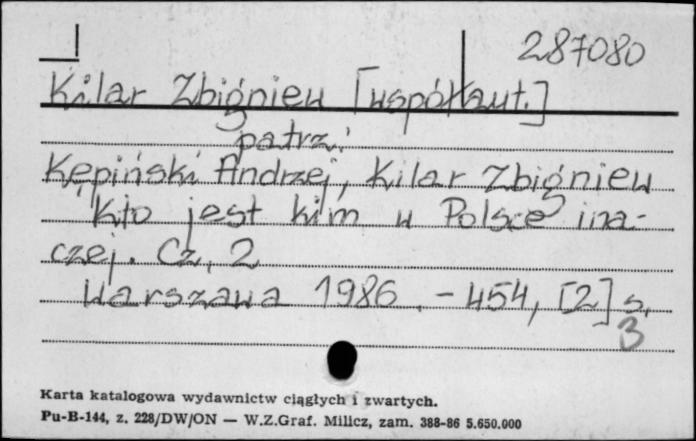 287080
Kilar Zbigniew [współaut.]
patrz:
Kępiński Andrzej, Kilar Zbigniew
Kto jest kim w Polsce ina-
czej. Cz. 2
Warszawa 1986. - 454, [2] s.
3
Karta katalogowa wydawnictw ciągłych i zwartych.
Pu-B-144, z. 228/DW/ON — W.Z.Graf. Milicz, zam. 388-86 5.650.000